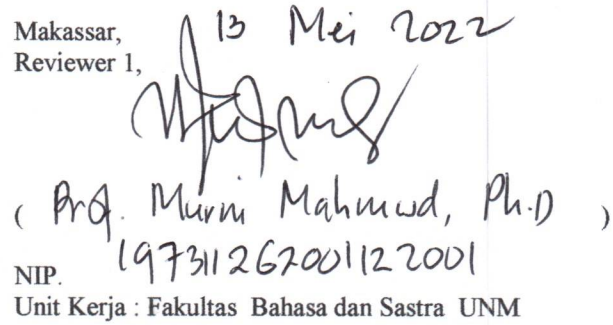 Makassar, 13 Mei 2022
Reviewer 1,
( Prof. Murni Mahmud, Ph.D )
NIP. 197311262001122001
Unit Kerja : Fakultas Bahasa dan Sastra UNM